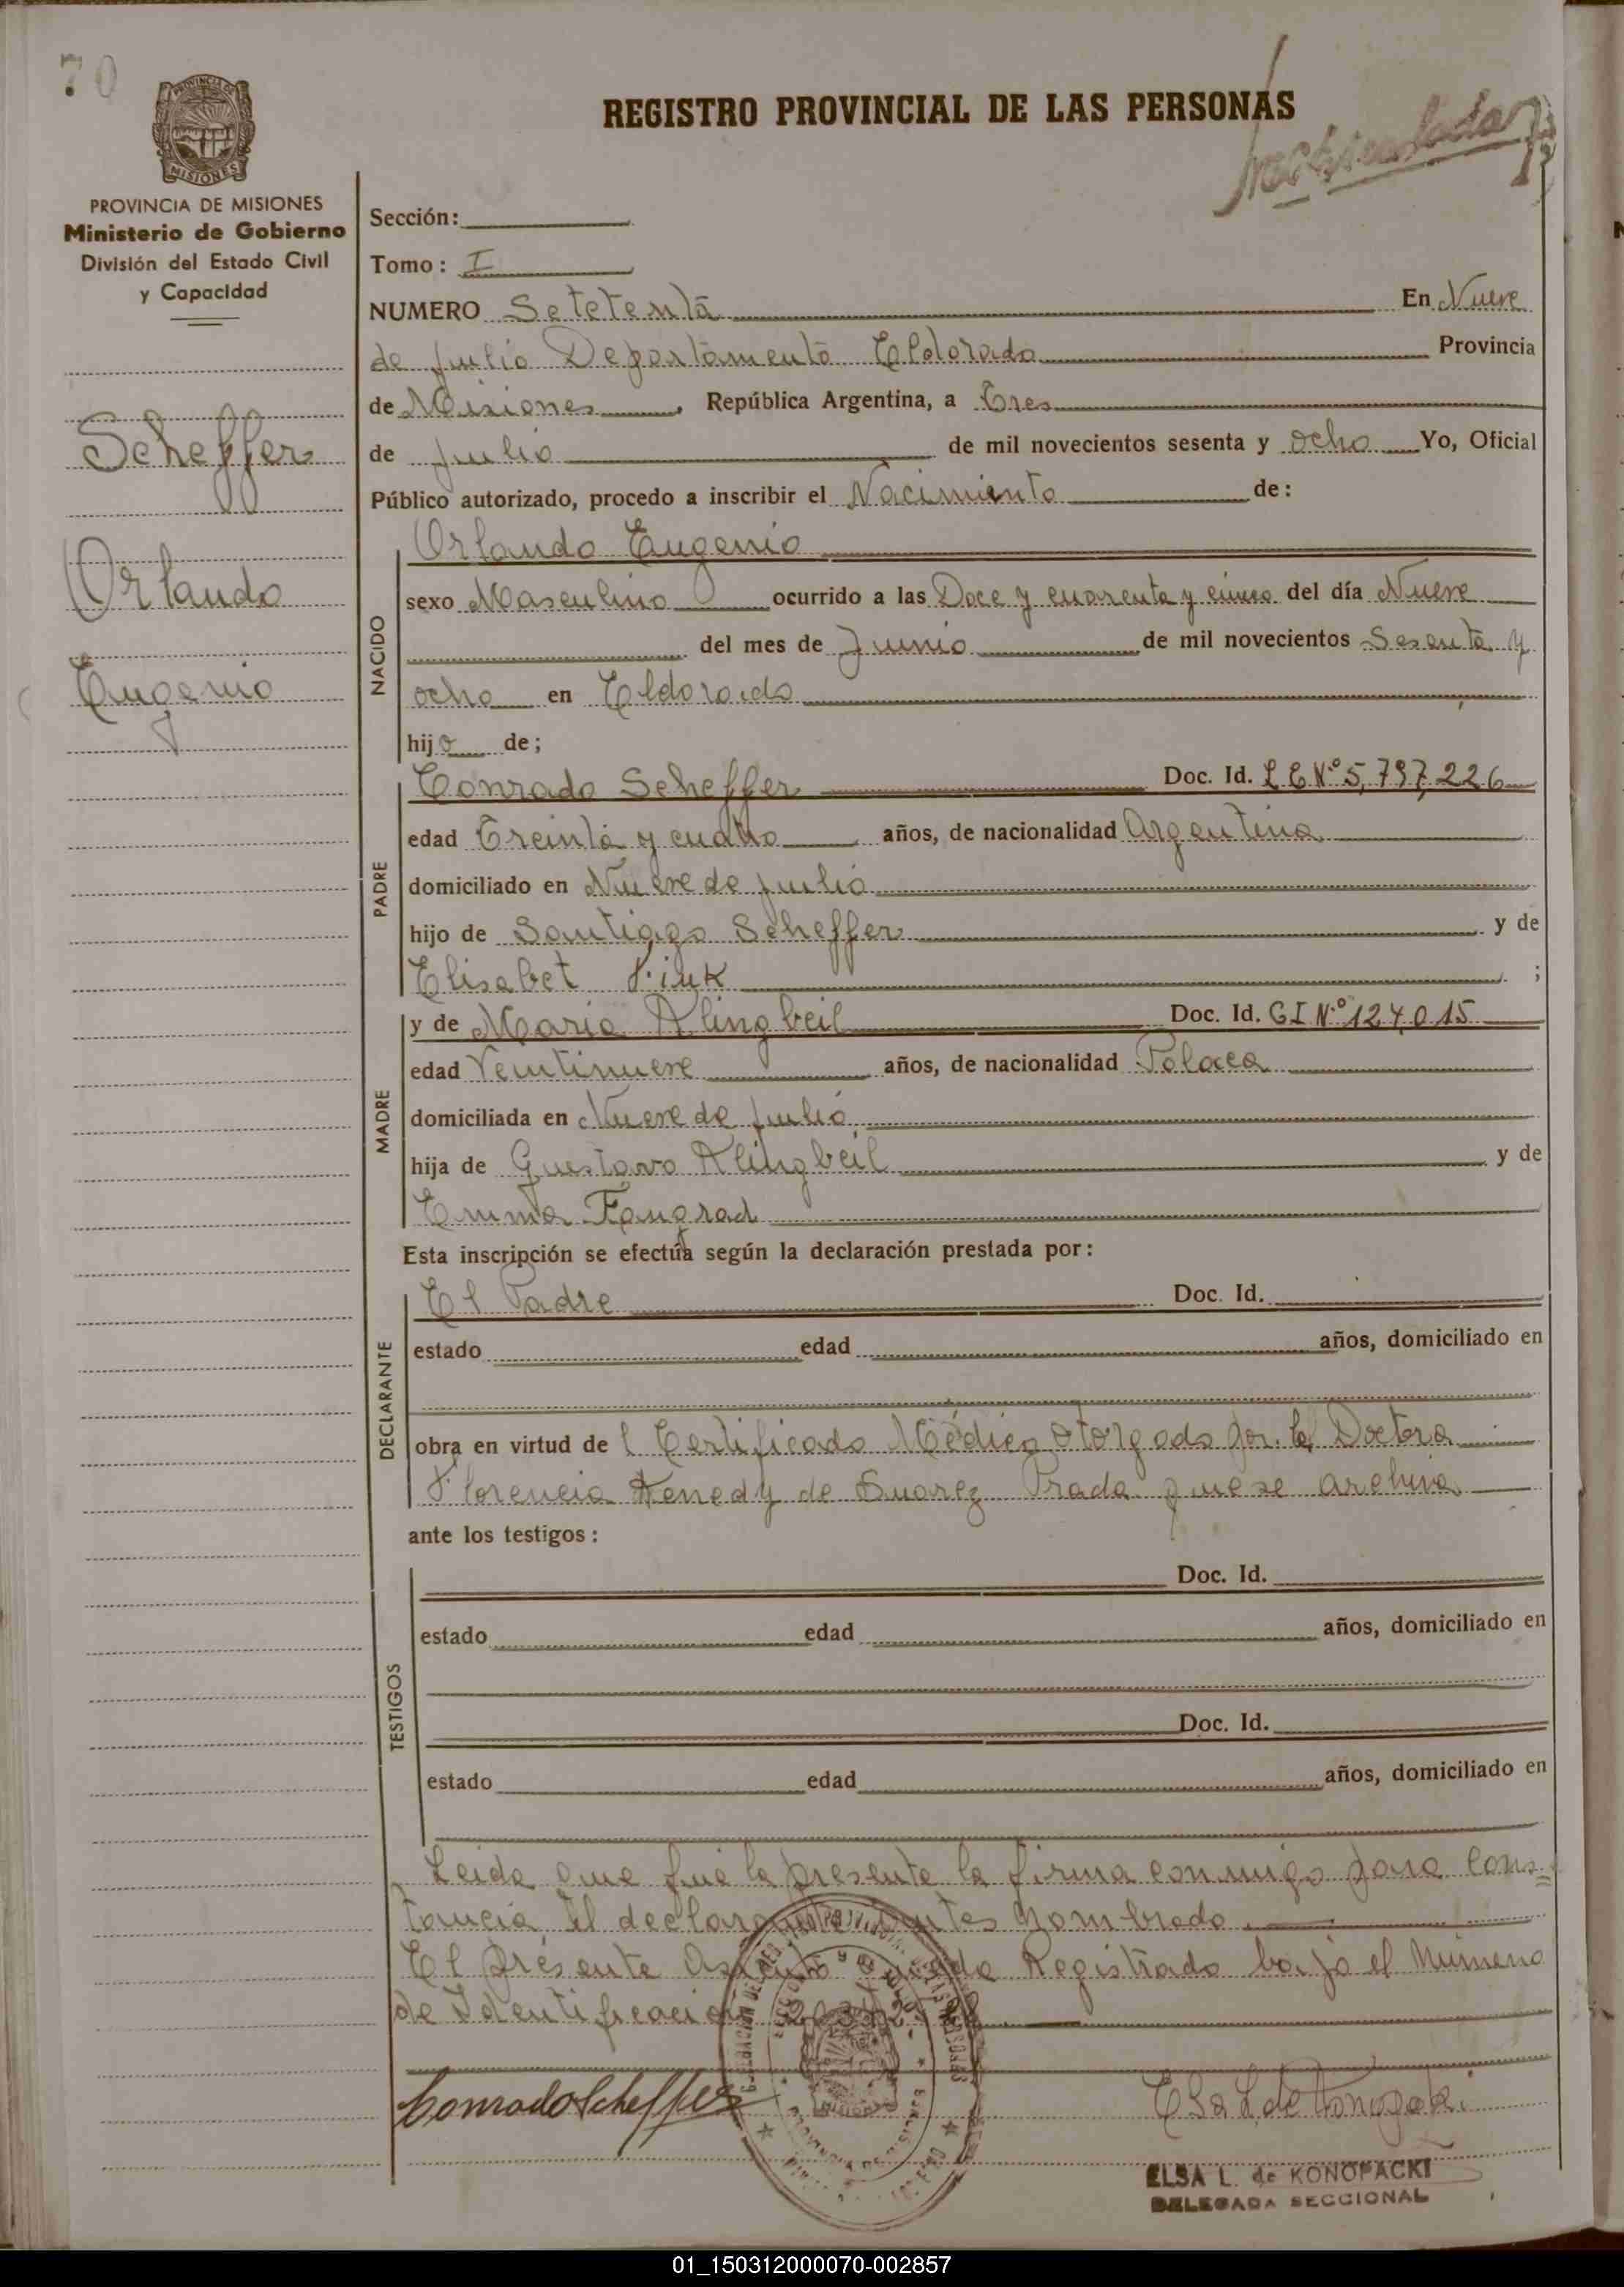 70
PROVINCIA DE MISIONES
Ministerio de Gobierno
División del Estado Civil
y Capacidad
Scheffer
Orlando
Eugenio
REGISTRO PROVINCIAL DE LAS PERSONAS
Sección:
Tomo: I
NUMERO Setetenta En Nueve
de Julio Departamento Eldorado Provincia
de Misiones, República Argentina, a Tres
de Julio de mil novecientos sesenta y ocho Yo, Oficial
Público autorizado, procedo a inscribir el Nacimiento de:
NACIDO
Orlando Eugenio
sexo Masculino ocurrido a las Doce y cuarenta y cinco del día Nueve
del mes de Junio de mil novecientos Sesenta y
ocho en Eldorado
hijo de;
PADRE
Conrado Scheffer Doc. Id. L E Nº 5,797,226
edad Treinta y cuatro años, de nacionalidad Argentina
domiciliado en Nueve de Julio
hijo de Santiago Scheffer y de
Elisabet Fink ;
MADRE
y de Maria Klingbeil Doc. Id. C I Nº 124,015
edad Veintinueve años, de nacionalidad Polaca
domiciliada en Nueve de Julio
hija de Gustavo Klingbeil y de
Emma Fangrad
Esta inscripción se efectúa según la declaración prestada por:
DECLARANTE
El Padre Doc. Id.
estado edad años, domiciliado en
obra en virtud de l Certificado Médico otorgado por la Doctora
Florencia Kenedy de Suarez Prada que se archiva
ante los testigos:
TESTIGOS
Doc. Id.
estado edad años, domiciliado en
Doc. Id.
estado edad años, domiciliado en
Leida que fué la presente la firma conmigo para cons=
tancia el declarante antes nombrado.
El presente Asiento queda Registrado bajo el Número
de Identificación
Conrado Scheffer
Elsa L. de Konopacki
ELSA L. de KONOPACKI
DELEGADA SECCIONAL
01_150312000070-002857